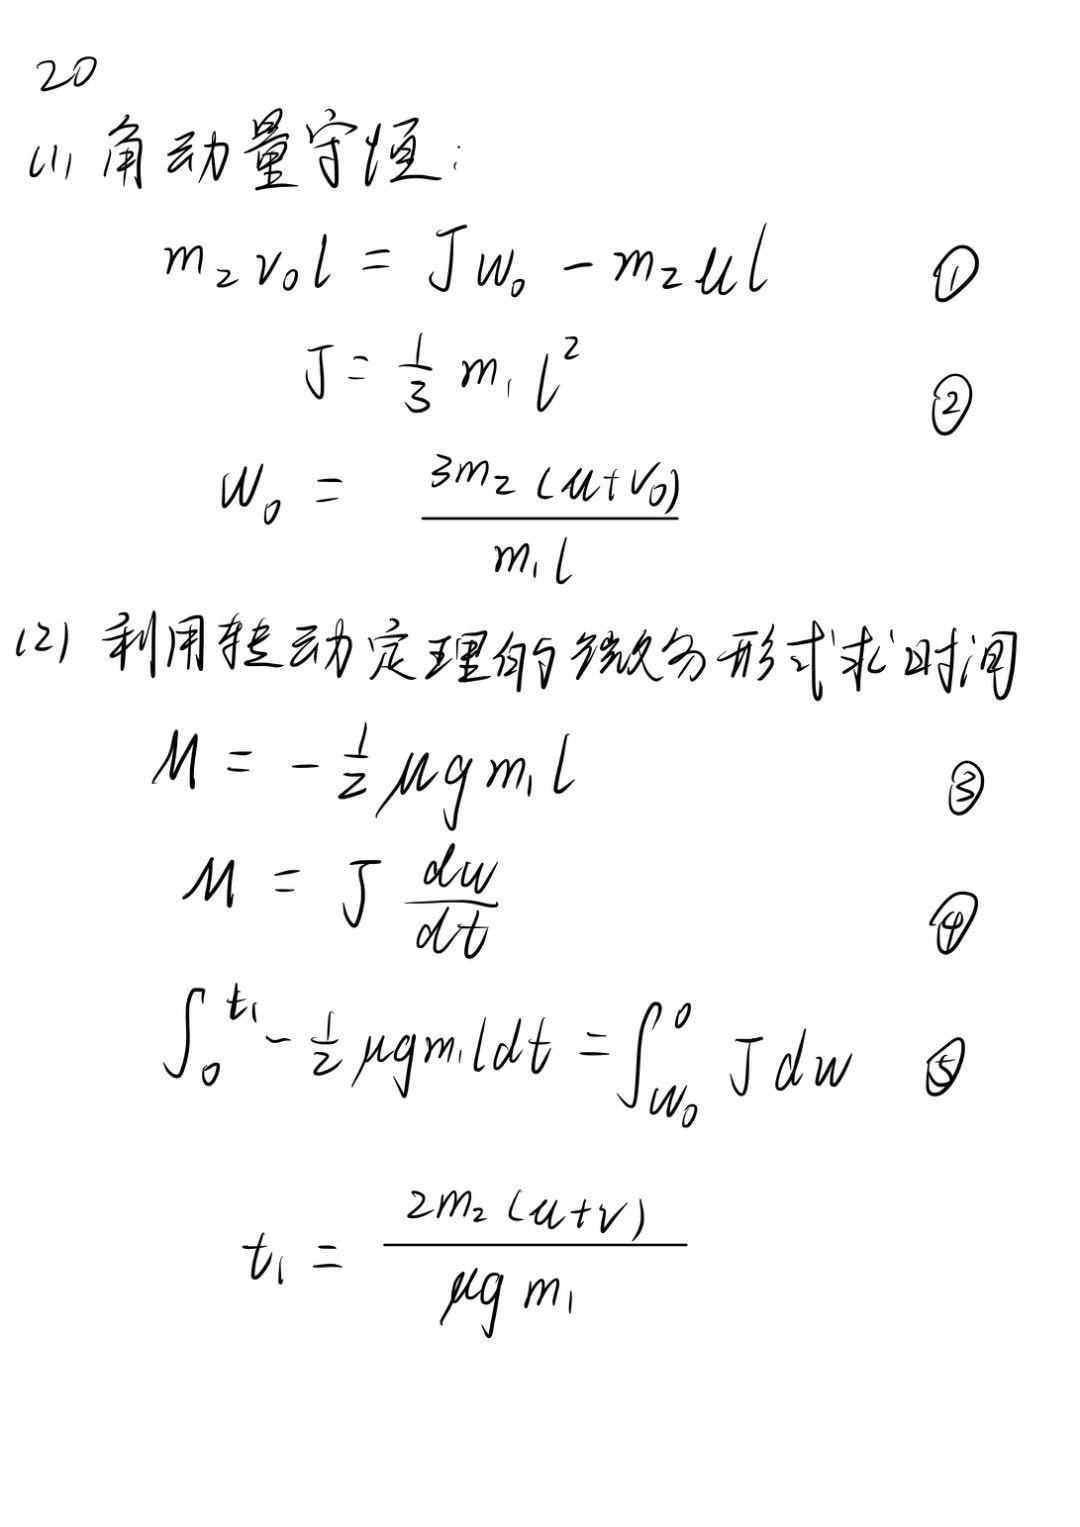 20
(1) 角动量守恒:
m₂v₀l = Jw₀ - m₂ul ①
J = 1/3 m₁l² ②
w₀ = 3m₂(u+v₀) / m₁l
(2) 利用转动定理的微分形式求时间
M = - 1/2 μgm₁l ③
M = J dw/dt ④
∫₀^t₁ - 1/2 μgm₁ldt = ∫_w₀^0 Jdw ⑤
t₁ = 2m₂(u+v) / μgm₁